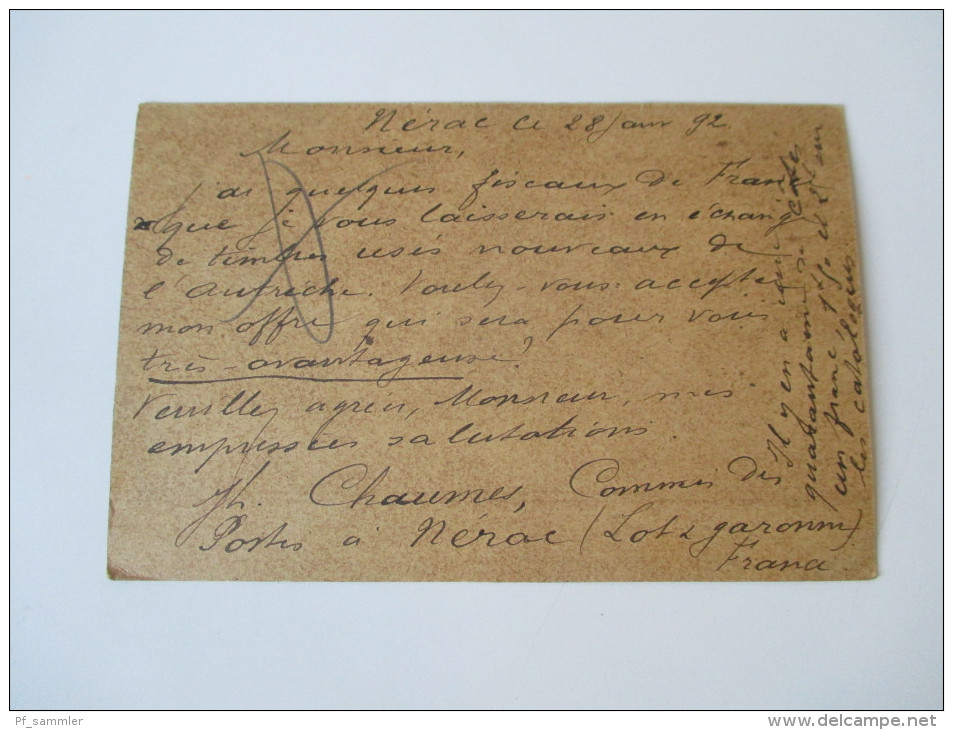 Nérac le 28 janv 92
Monsieur,
J'ai quelques fiscaux de France
que je vous laisserais en échange
de timbres usés nouveaux de
l'Autriche. Voulez-vous accepter
mon offre qui sera pour vous
très-avantageuse?
Veuillez agréer, Monsieur, mes
empressées salutations.
Jh. Chaumes, Commis des
Postes à Nérac (Lot & garonne)
France.
Il y en a une
quarantaine cotés
un franc 50 et sur
les catalogues
Pf_sammler
delcampe.net